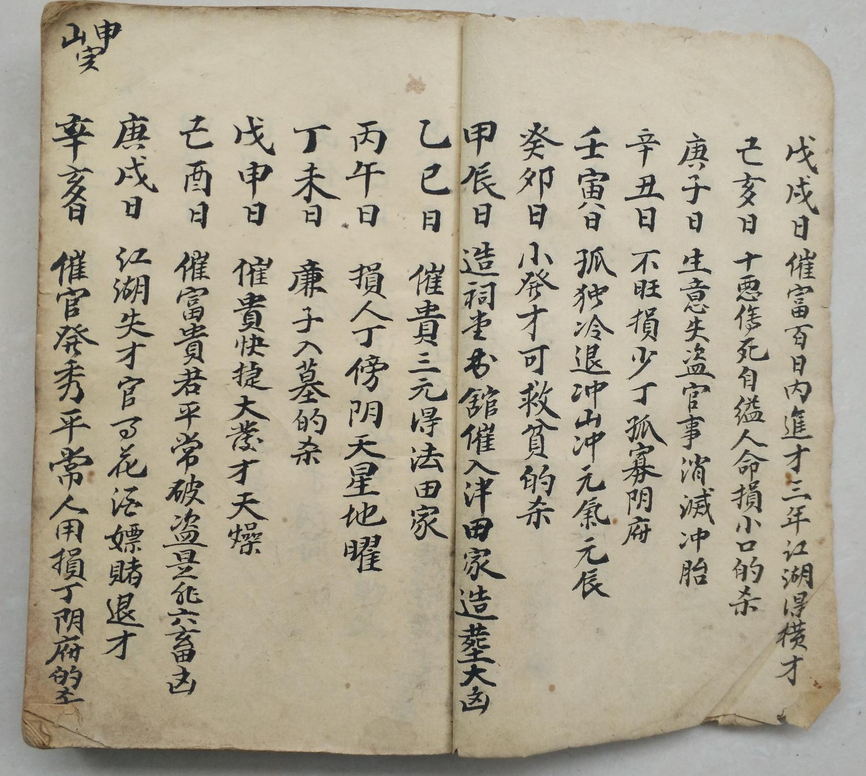 戊戌日催富百日内進才三年江湖淂横才
己亥日十悪傷死自缢人命損小口的杀
庚子日生意失盗官事消滅冲胎
辛丑日不旺損少丁孤寡阴府
壬寅日孤独冷退冲山冲元氣元辰
癸卯日小發才可救貧的杀
甲辰日造祠堂书舘催入泮田家造塟大凶
乙巳日催貴三元淂法田家
丙午日損人丁傍阴天星地曜
丁未日廉子入墓的杀
戊申日催貴快捷大發才天燥
己酉日催富貴若平常破盗是非六畜凶
庚戌日江湖失才官司花酒嫖賭退才
辛亥日催官發秀平常人用損丁阴府的
山申